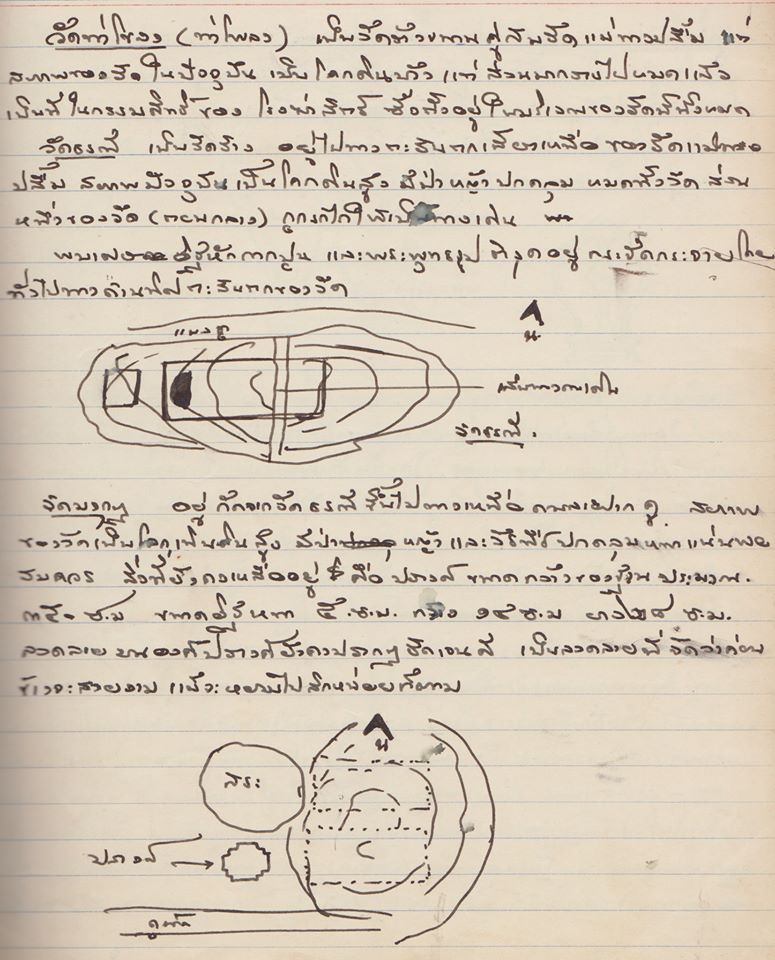 วัดท่าโขลง (ท่าโพลง) เป็นวัด คู่กับวัดแม่นางปลื้ม แต่
สภาพของวัดในปัจจุบัน เป็นโคกดินบ้าง แต่ส่วนมากรางไปหมดแล้ว
เป็นที่ในกรรมสิทธิ์ของ ซึ่งตั้งอยู่ในบริเวณของวัดนี้ทั้งหมด
วัดธรณี เป็นวัดร้าง อยู่ไปทางตะวันตกเฉียงเหนือของวัดแม่นาง
ปลื้ม สภาพปัจจุบันเป็นโคกดินสูง มีป่าหญ้าปกคลุมหมดทั้งวัด ส่วน
หนึ่งของวัด (ตอนกลาง) ถูกรถไถให้เป็นทางเดิน
พบเศษอิฐหักกากปูน และพระพุทธรูปชำรุดอยู่กระจัดกระจายโดย
ทั่วไปทางด้านทิศตะวันตกของวัด
น.
แนวอิฐ
เป็นทางคนเดิน
วัดธรณี.
อยู่ถัดจากวัดธรณีขึ้นไปทางเหนือ สภาพ
ของวัดเป็นโคกเนินดินสูง มีป่าหญ้าและวัชพืชปกคลุมหนาแน่นพอ
สมควร สิ่งที่ยังคงเหลืออยู่ คือ ปรางค์ ขนาดกว้างของฐาน ประมาณ
๓๕๐ ซ.ม ขนาดอิฐหนา ๕ ซ.ม. กว้าง ๑๔ ซ.ม ยาว ๒๘ ซ.ม.
ลวดลายบนองค์ปรางค์ยังคงปรากฏชัดเจนดี เป็นลวดลายที่จัดว่าค่อน
ข้างจะสวยงาม แม้จะหยาบไปสักหน่อยก็ตาม
น
สระ
ปรางค์
คูน้ำ